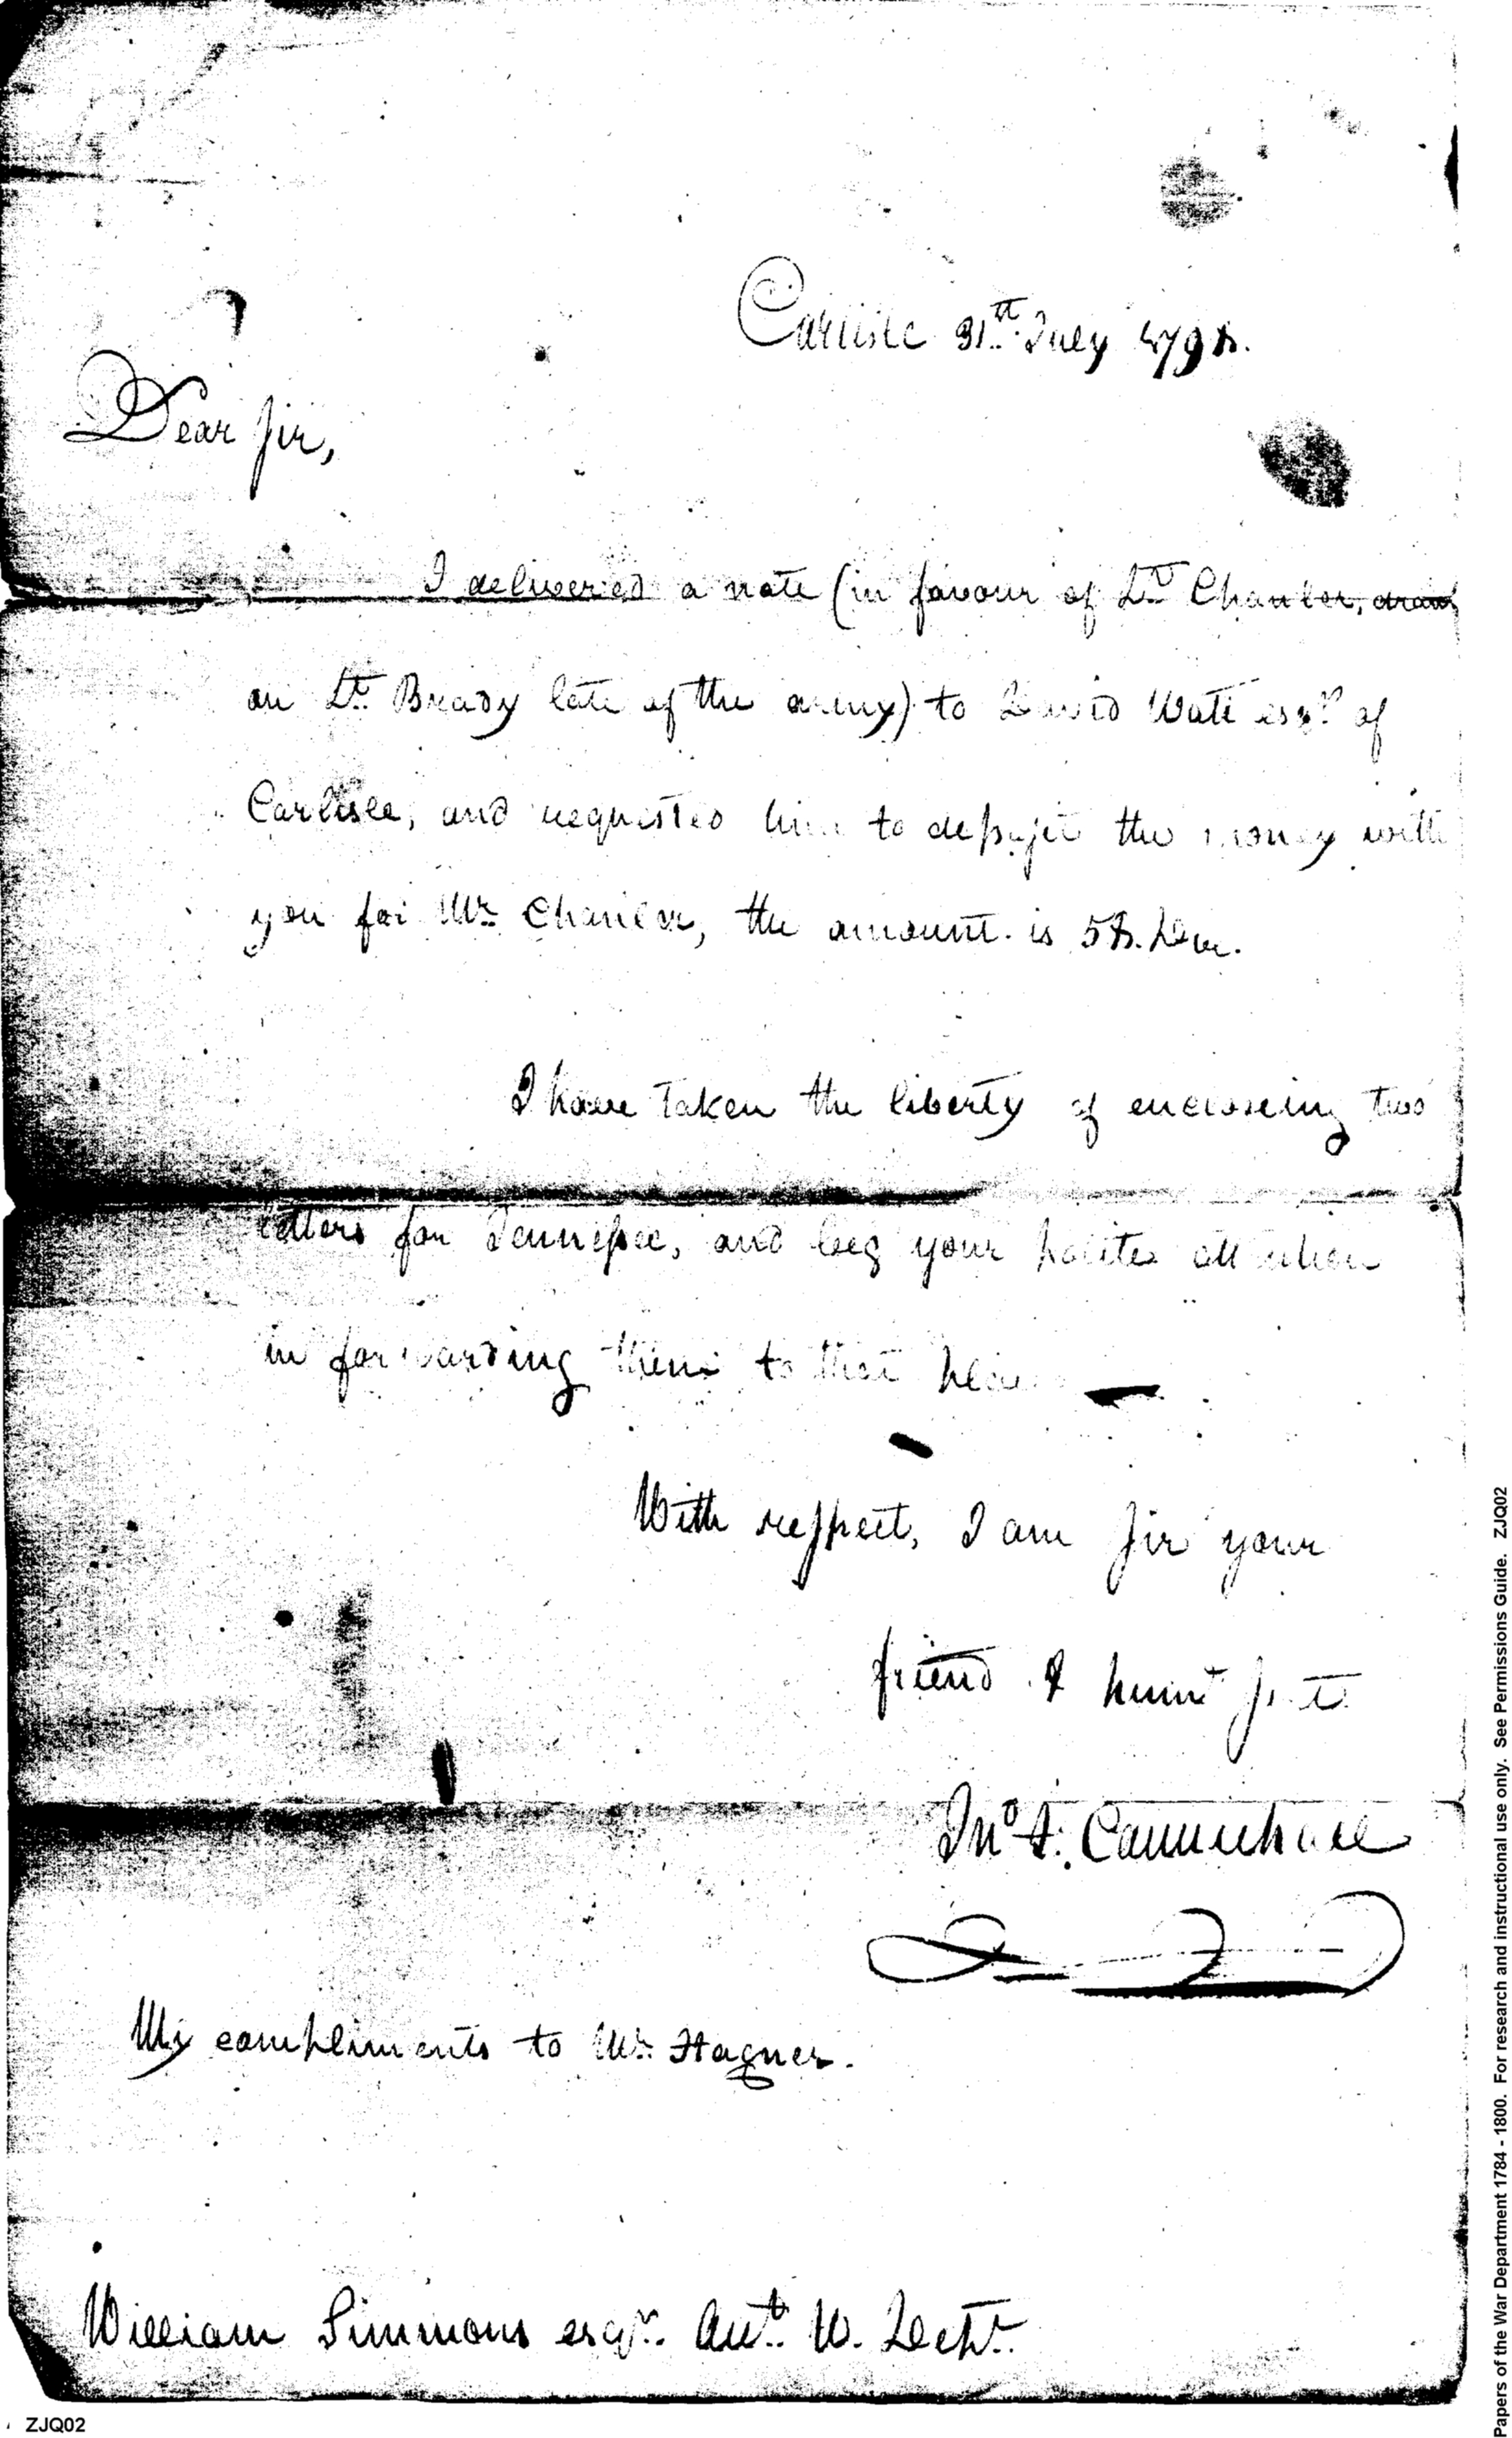 Carlisle 31.th July 1798.
Dear Sir,
I delivered a note (in favour of Lt. Chanler, drawn
on Lt. Brady late of the army) to David Watt esqr. of
Carlisle, and requested him to deposit the money with
you for Mr. Chanler, the amount is
I have taken the liberty of enclosing two
letters for Tennessee, and beg your polite attention
in forwarding them to that place
With respect, I am Sir your
friend & hum
Jno
My compliments to Mr. Hagner.
William Simmons esqr. W. Dept.
ZJQ02
Papers of the War Department 1784 - 1800. For research and instructional use only. See Permissions Guide. ZJQ02